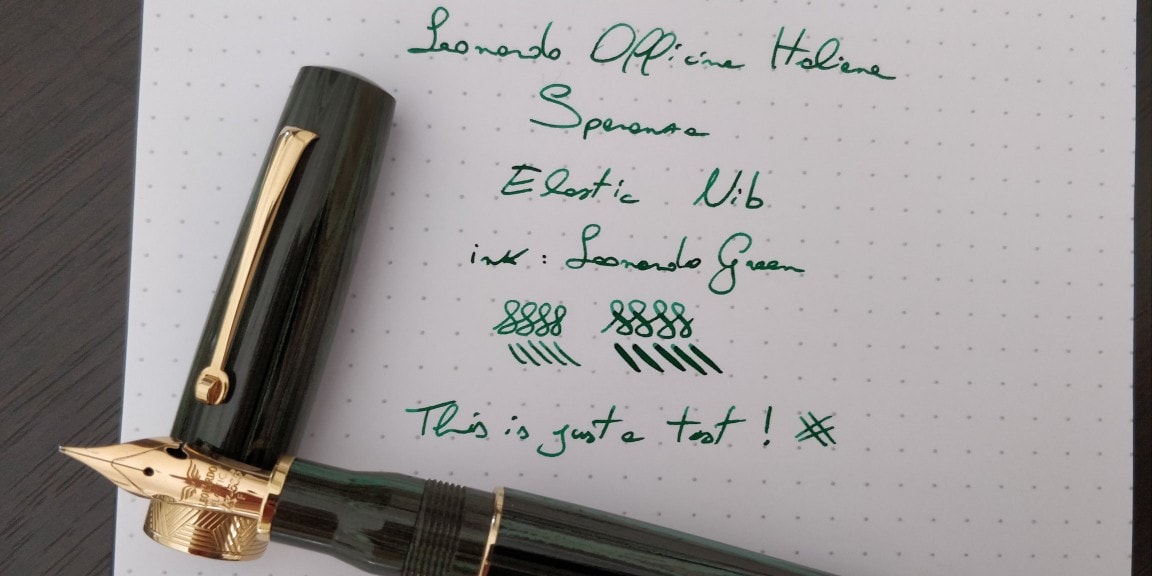 Leonardo Officina Italiana
Speranza
Elastic Nib
ink : Leonardo Green
This is just a test !
LEONARDO